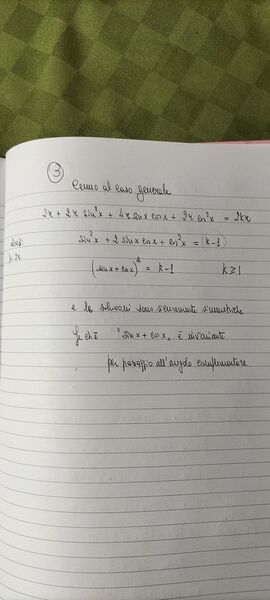 3
Cenno al caso generale
2r + 2r sin²x + 4r sinx cosx + 2r cos²x = 2kr
sin²x + 2 sinx cosx + cos²x = k-1
divido
p. 2r
(sinx + cosx)² = k-1 k ≥ 1
e le soluzioni sono sicuramente simmetriche
"sinx + cosx" è invariante
per passaggio all'angolo complementare